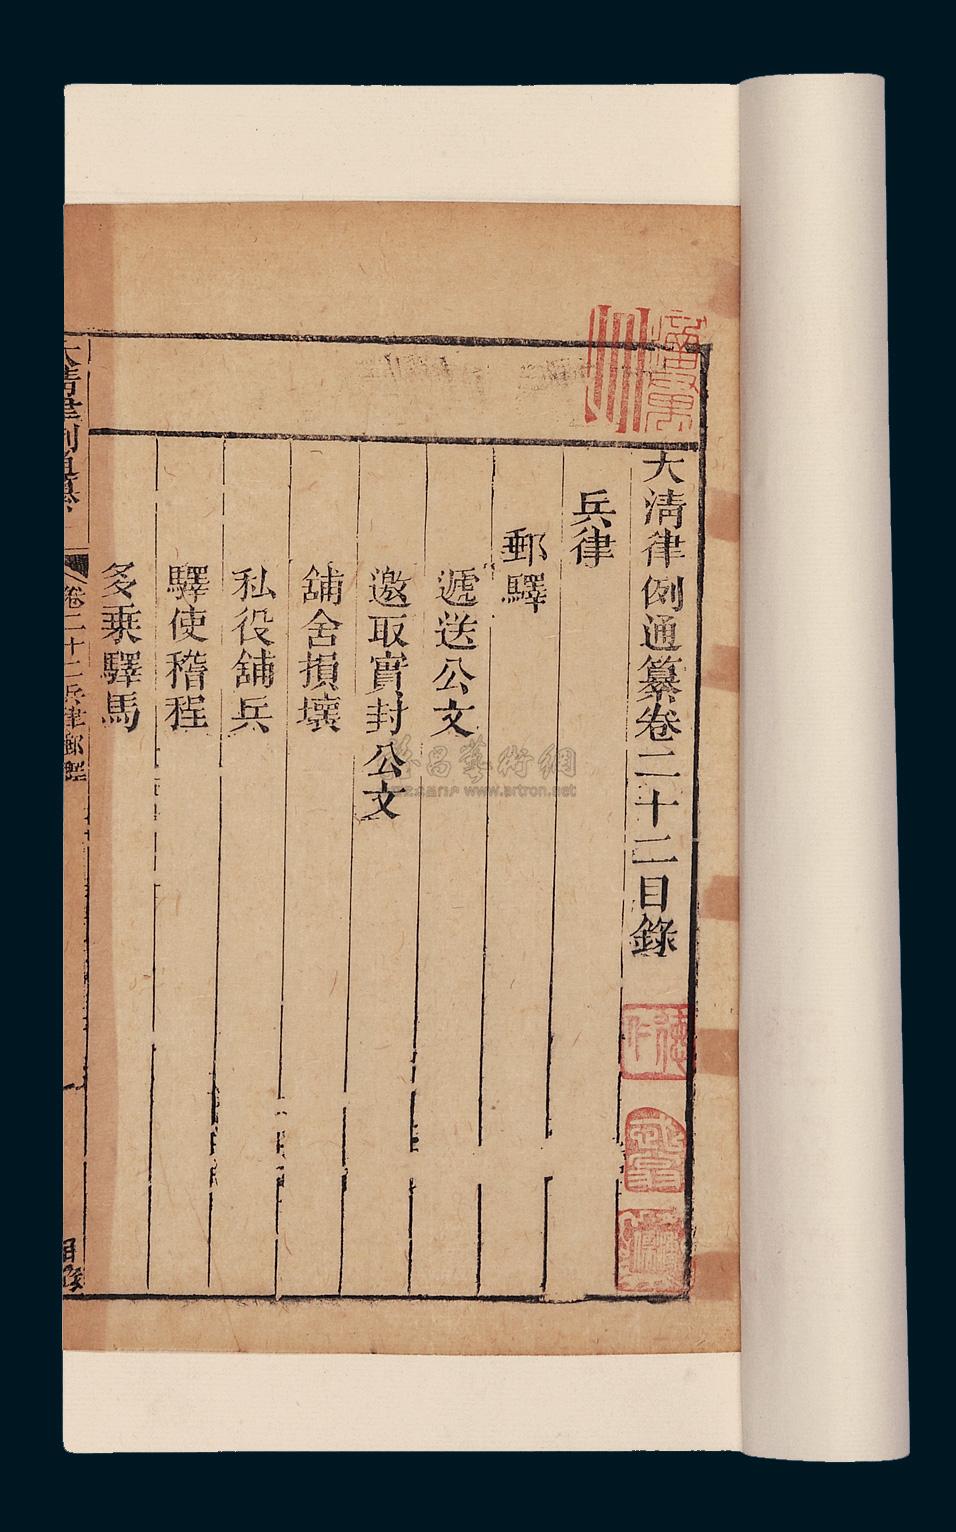 大淸律例通纂卷二十二目錄
兵律
郵驛
遞送公文
邀取實封公文
舖舍損壞
私役舖兵
驛使稽程
多乘驛馬
大淸律例通纂
卷二十二兵律郵驛
一
目錄
藝術網
www.artron.net